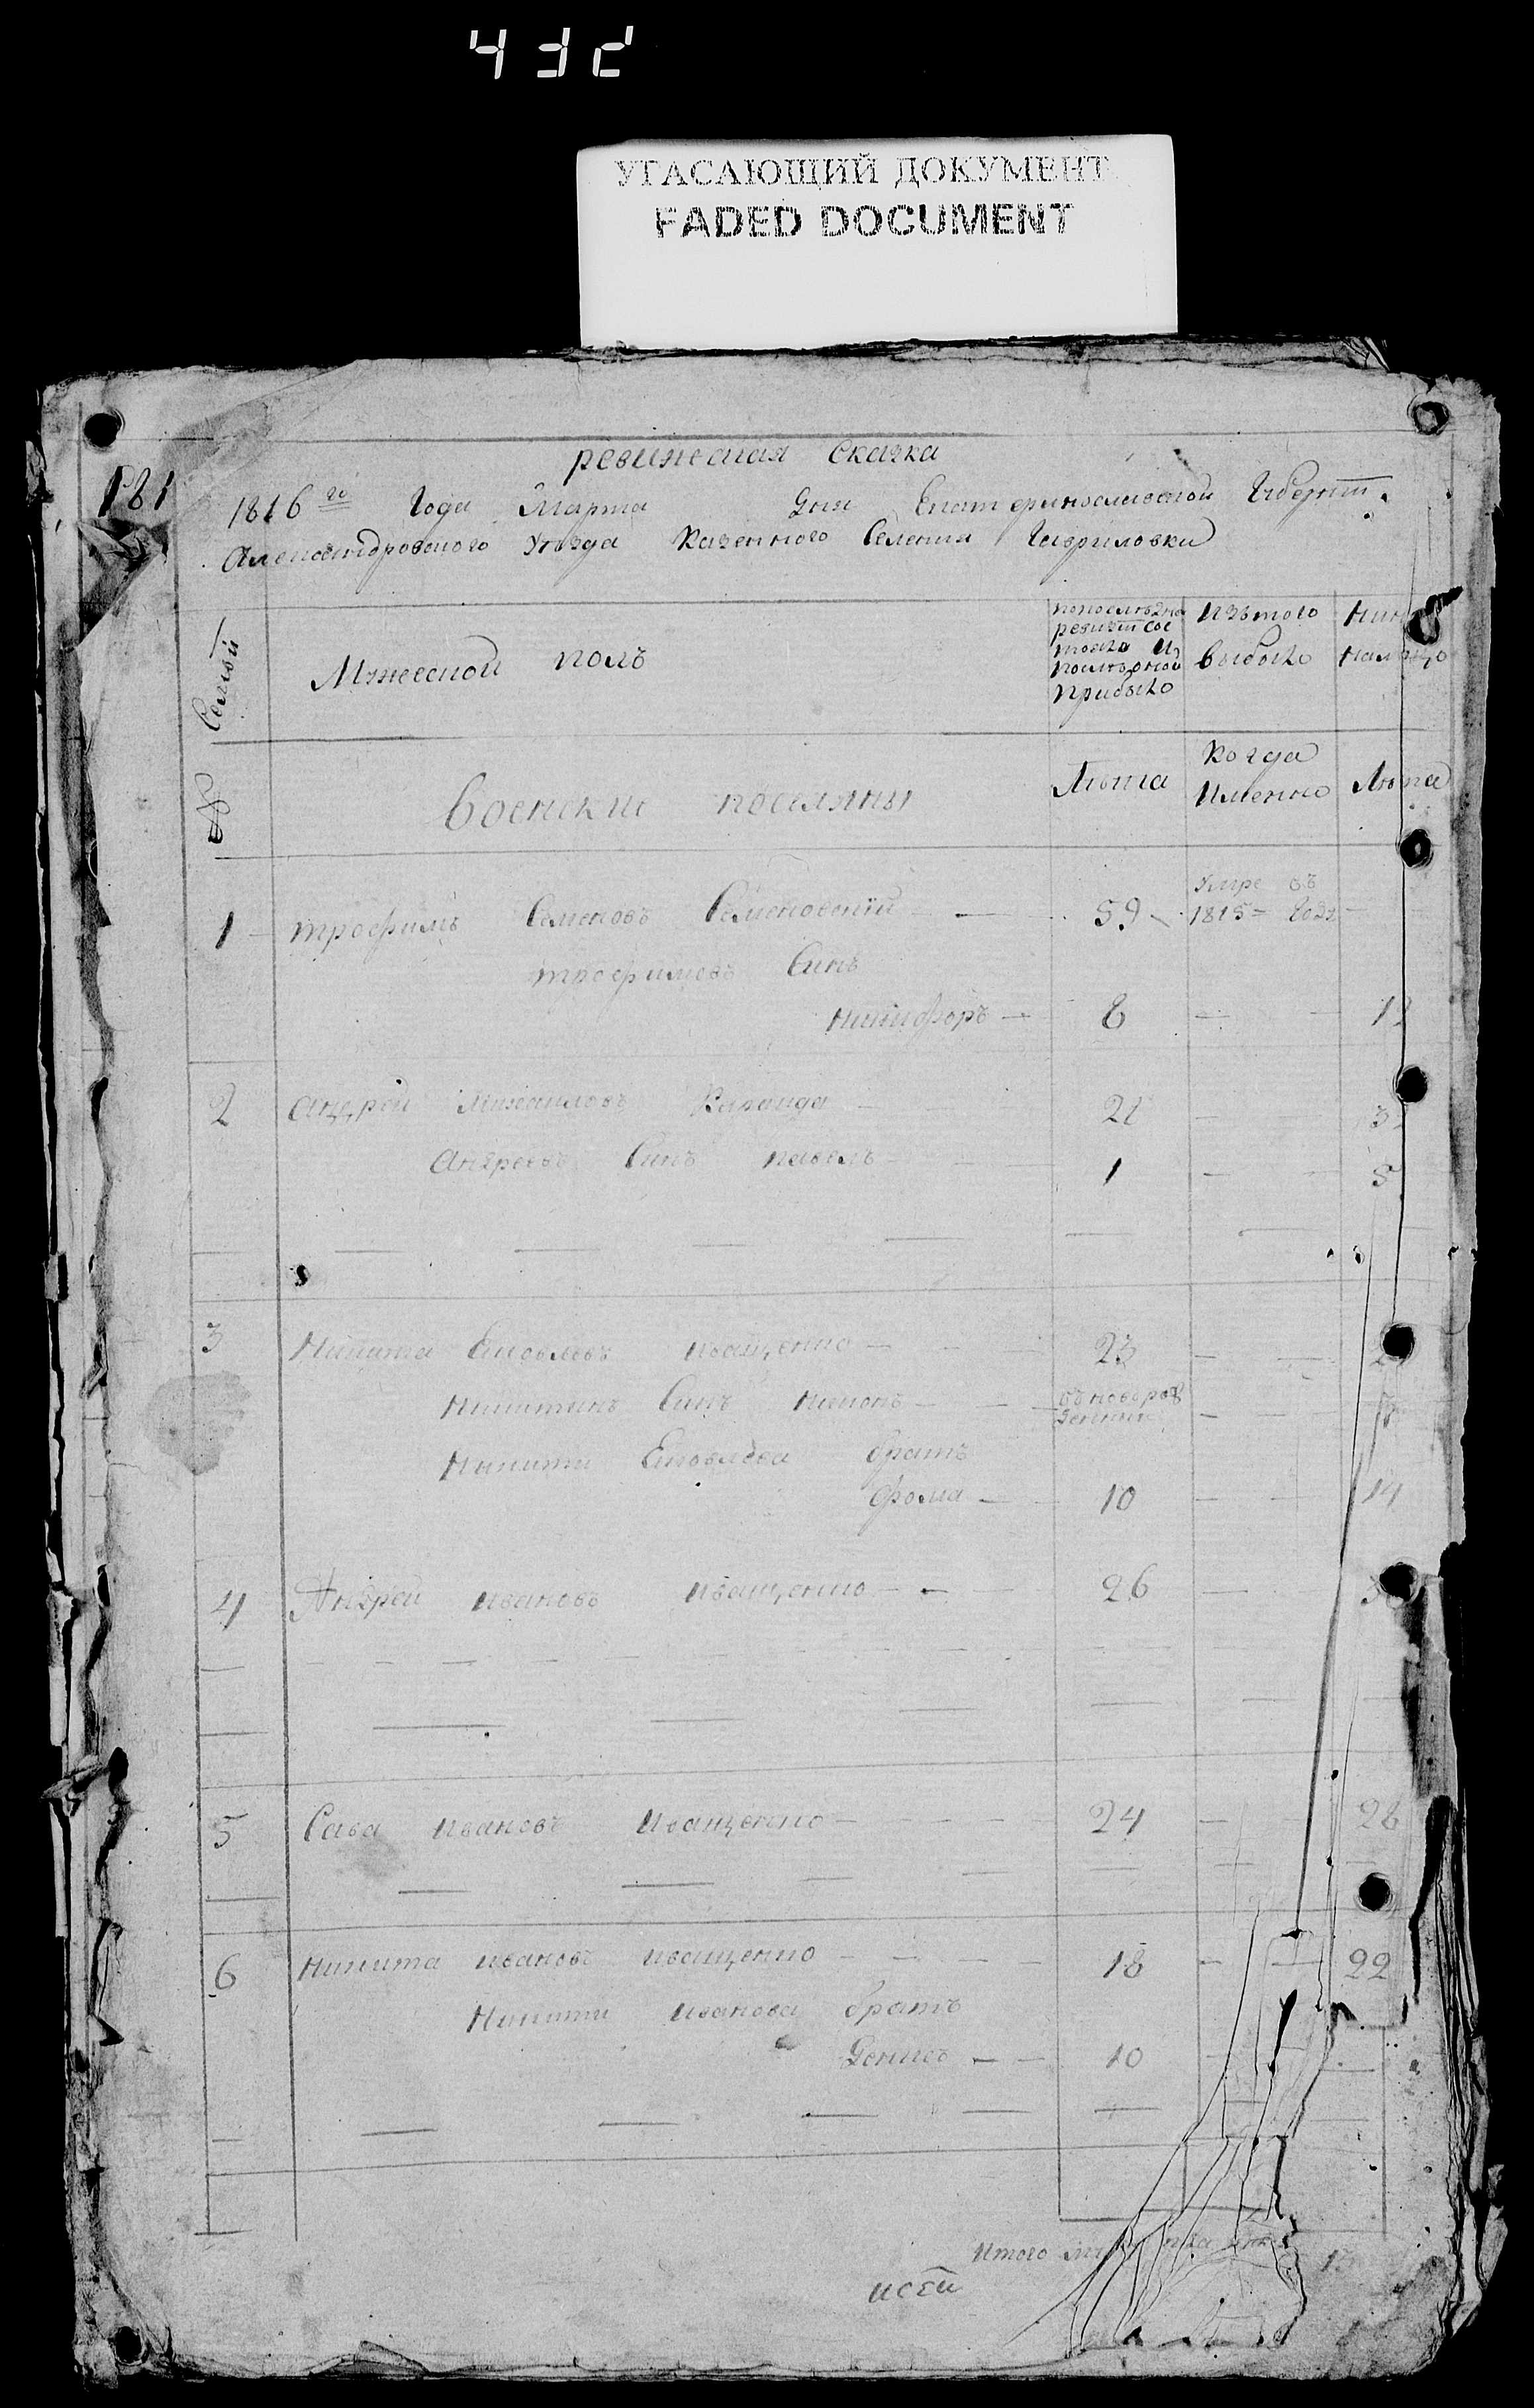 432
УГАСАЮЩИЙ ДОКУМЕНТ
FADED DOCUMENT
ревижская Сказка
181
1816го Года Марта Дня Екатеринославской Губерніи
Александровского Уѣзда Казенного Селения Гавриловки
Семьи
Мужеской полъ
попослѣдней ревизіи состояло и послѣ оной прибыло
Изътого выбыло
Ныне налицо
№
Военские поселяны
Лѣта
Когда Именно
Лѣта
1 трофимъ Семеновъ Семеновский 59 Умре въ 1815 Году
трофимовъ Синъ
Никифоръ 8 12
2 Андрей Михаиловъ 21
Андреевъ Синъ павелъ 1 5
3 Никита Яковлевъ иващенко 23
Никитинъ Синъ новорожденный
Никити Яковлева братъ
Фома 10 14
4 Андрей ивановъ иващенко 26
5 Сава ивановъ иващенко 24 28
6 Никита ивановъ иващенко 18 22
Никити иванова братъ
Денисъ 10
Итого